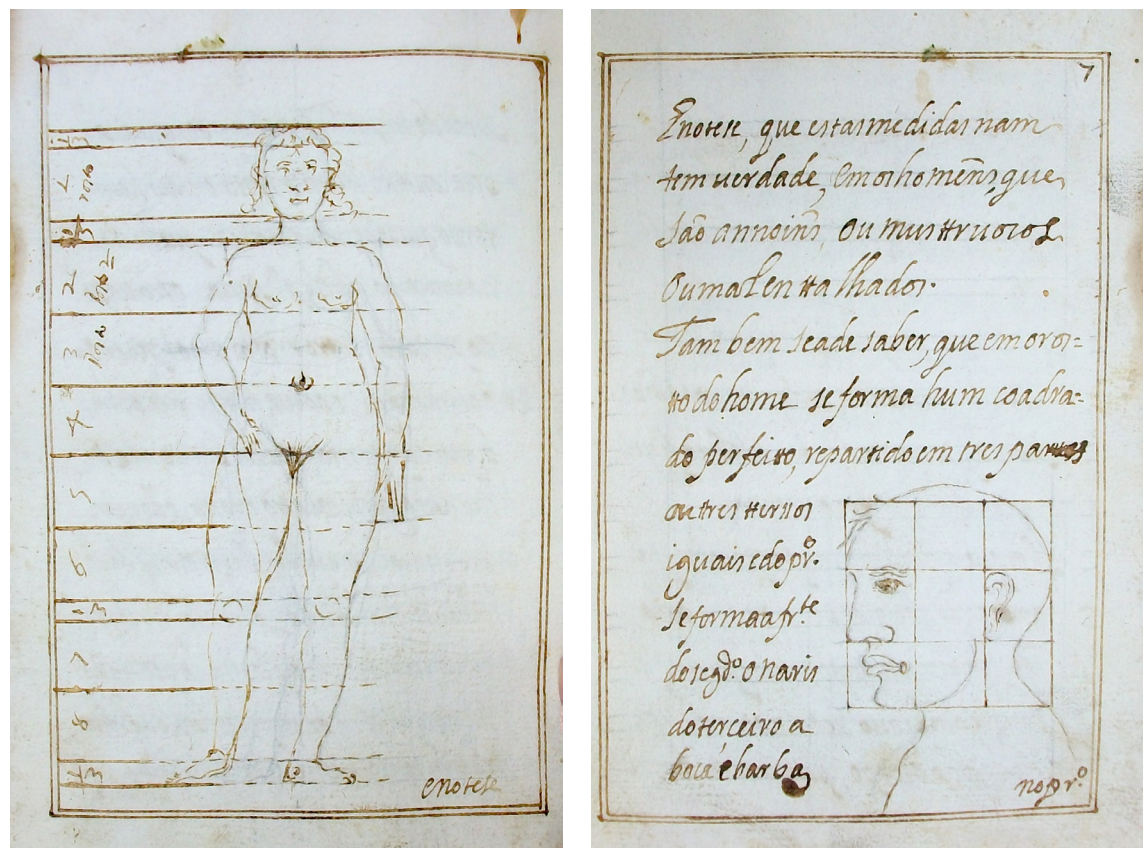 1/3
1 rosto
1/3
2 rosto 2
3 rosto
4
5
6
1/3
7
8
1/3
enotese
7
Enotese, que estas medidas nam
tem verdade, Em os homẽns, que
são annoiñs, Ou musttruosos
Ou mal enttalhados.
Tam bem seade saber, que em oros=
tto do home se forma hum coadra=
do perfeitto, repartido em tres partes
outres ttersos
iguais edo pr.º
se forma a fr.te
do segd.º o naris
do terceiro a
boca e barba
no pr.º